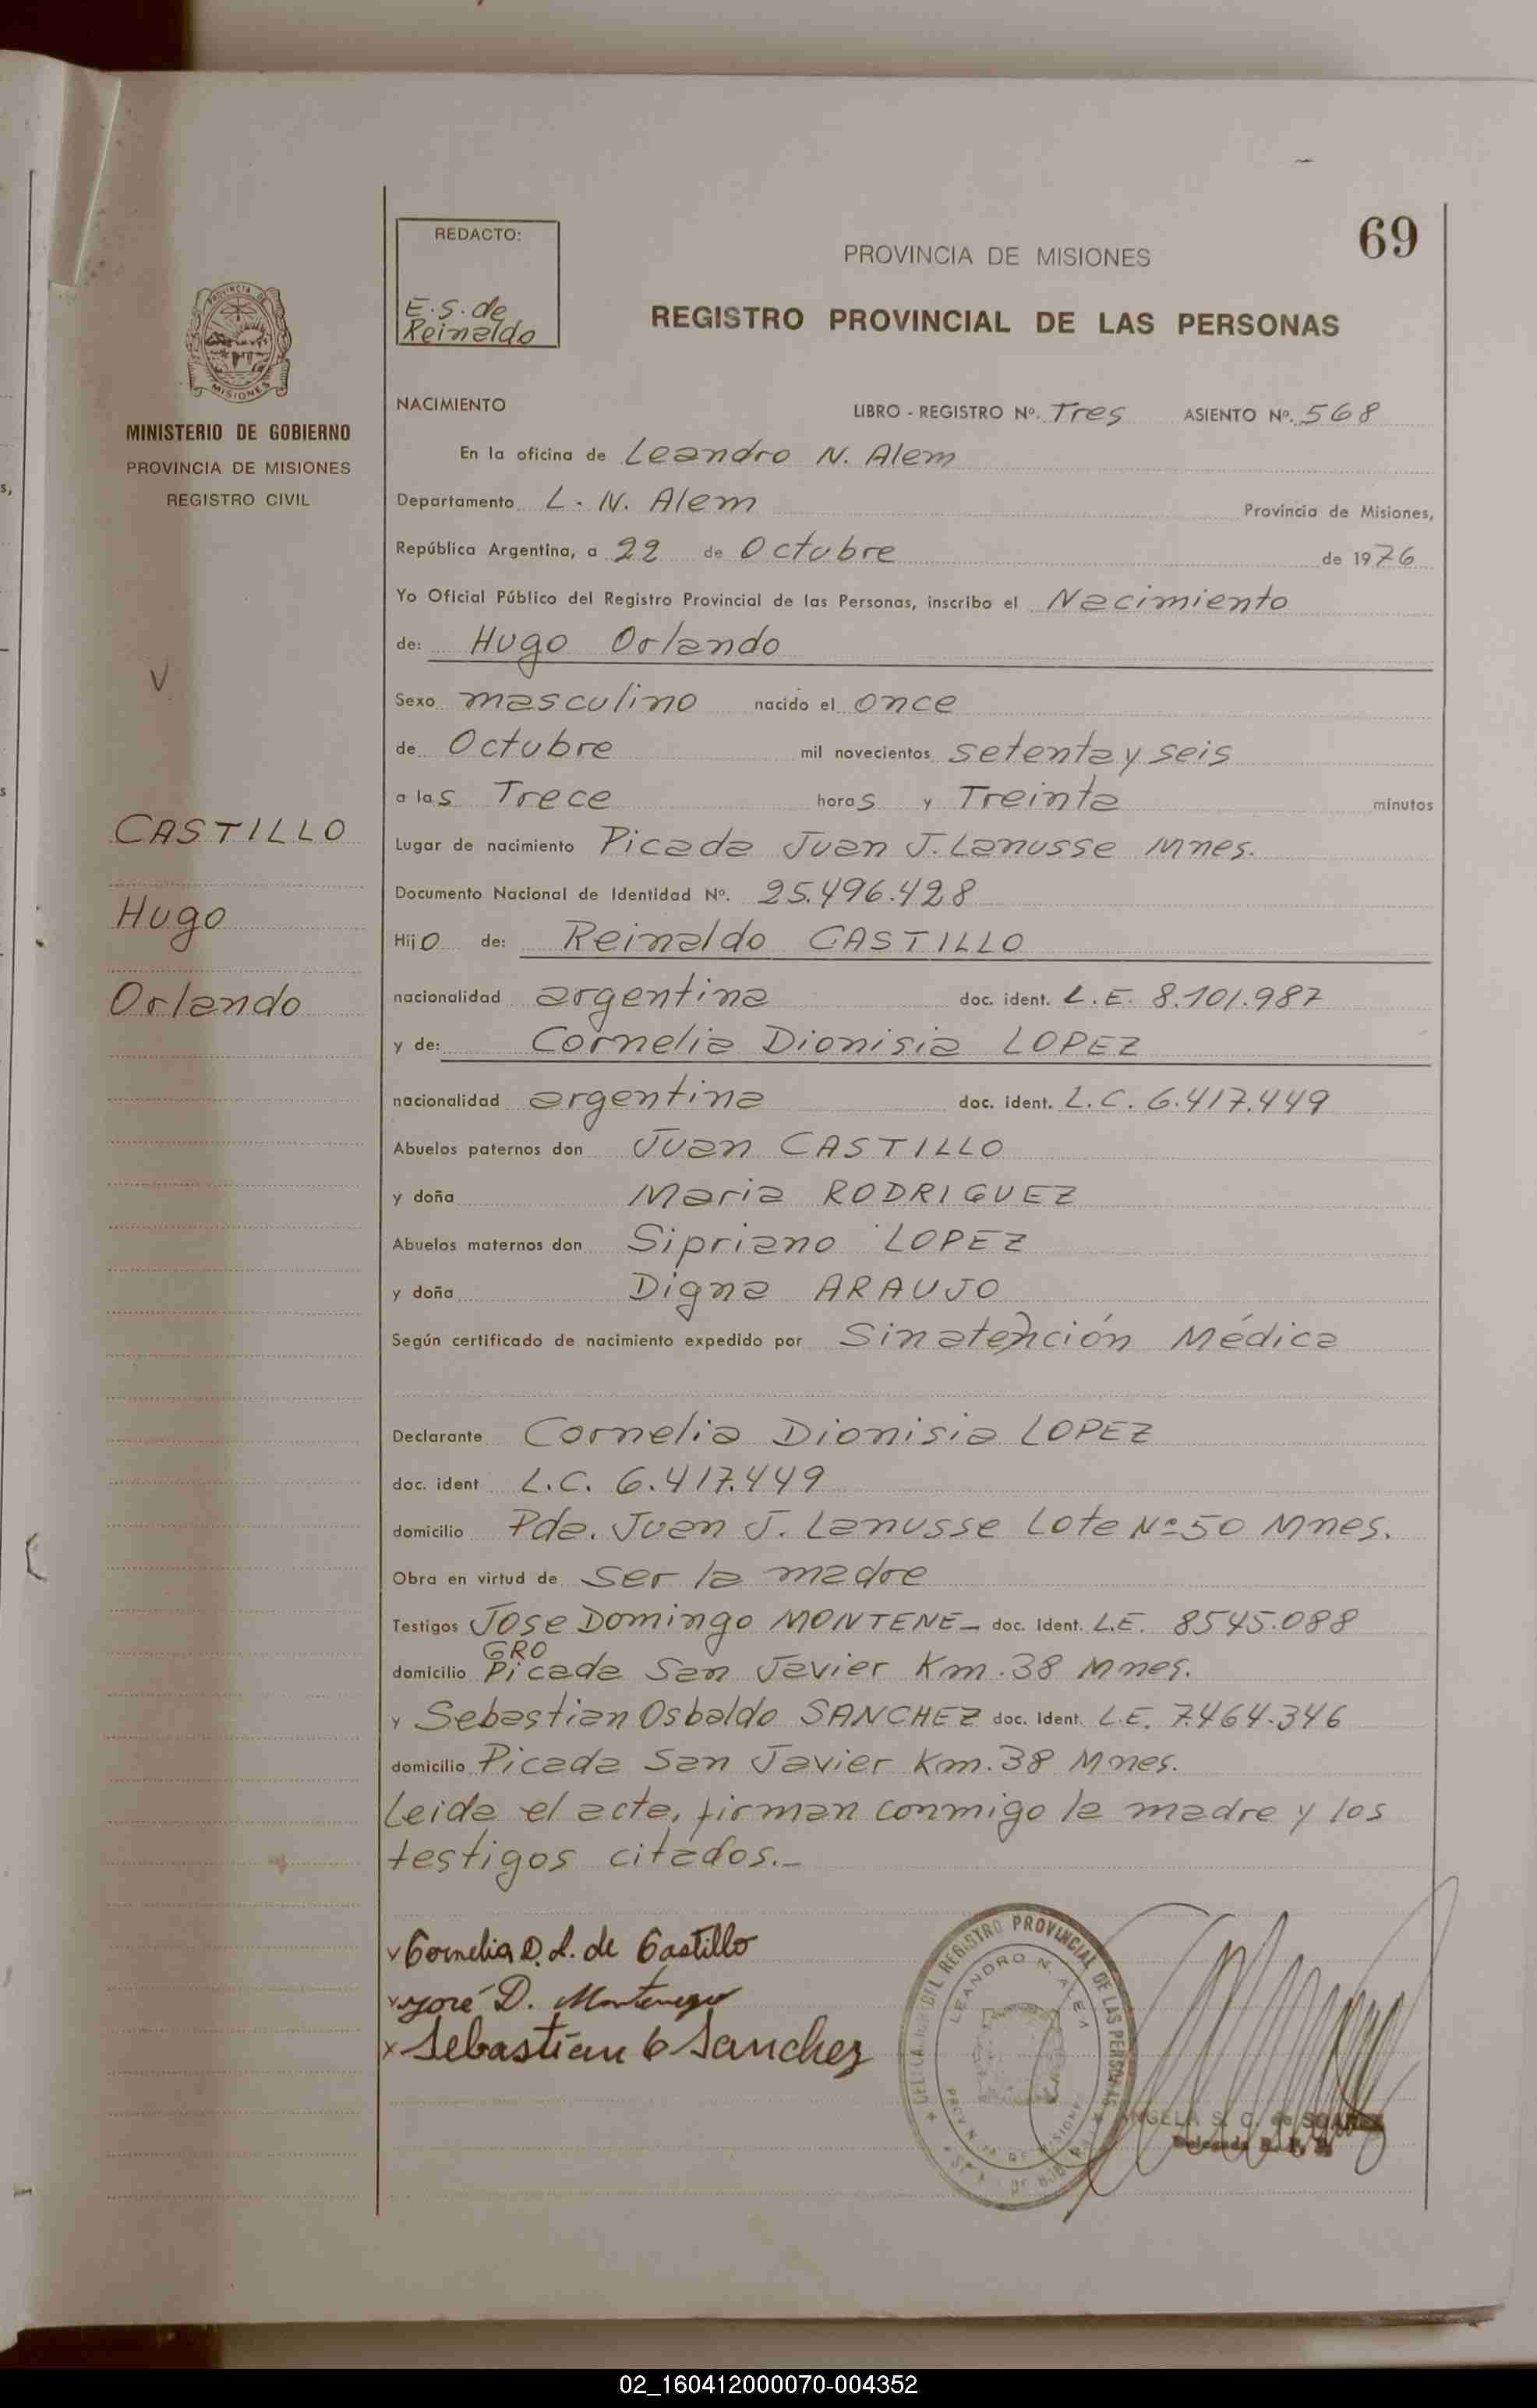 69
REDACTO:
E. S. de
Reinaldo
PROVINCIA DE MISIONES
REGISTRO PROVINCIAL DE LAS PERSONAS
PROVINCIA DE
MISIONES
MINISTERIO DE GOBIERNO
PROVINCIA DE MISIONES
REGISTRO CIVIL
CASTILLO
Hugo
Orlando
NACIMIENTO LIBRO - REGISTRO Nº. Tres ASIENTO Nº. 568
En la oficina de Leandro N. Alem
Departamento L. N. Alem Provincia de Misiones,
República Argentina, a 22 de Octubre de 1976
Yo Oficial Público del Registro Provincial de las Personas, inscribo el Nacimiento
de: Hugo Orlando
Sexo masculino nacido el once
de Octubre mil novecientos setenta y seis
a las Trece horas y Treinta minutos
Lugar de nacimiento Picada Juan J. Lanusse Mnes.
Documento Nacional de Identidad Nº. 25.496.428
Hijo de: Reinaldo CASTILLO
nacionalidad argentina doc. ident. L.E. 8.101.987
y de: Cornelia Dionisia LOPEZ
nacionalidad argentina doc. ident. L.C. 6.417.449
Abuelos paternos don Juan CASTILLO
y doña Maria RODRIGUEZ
Abuelos maternos don Sipriano LOPEZ
y doña Digna ARAUJO
Según certificado de nacimiento expedido por Sin atención Médica
Declarante Cornelia Dionisia LOPEZ
doc. ident L.C. 6.417.449
domicilio Pda. Juan J. Lanusse Lote Nº 50 Mnes.
Obra en virtud de ser la madre
Testigos Jose Domingo MONTENE- doc. ident. L.E. 8545.088
GRO
domicilio Picada San Javier Km. 38 Mnes.
y Sebastian Osbaldo SANCHEZ doc. Ident. L.E. 7.464.346
domicilio Picada San Javier Km. 38 Mnes.
Leida el acta, firman conmigo la madre y los
testigos citados.-
Cornelia D. L. de Castillo
José D. Montenegro
Sebastian O Sanchez
REGISTRO PROVINCIAL DE LAS PERSONAS
LEANDRO N. ALEM
ANGELA S. C. de SUAREZ
02_160412000070-004352